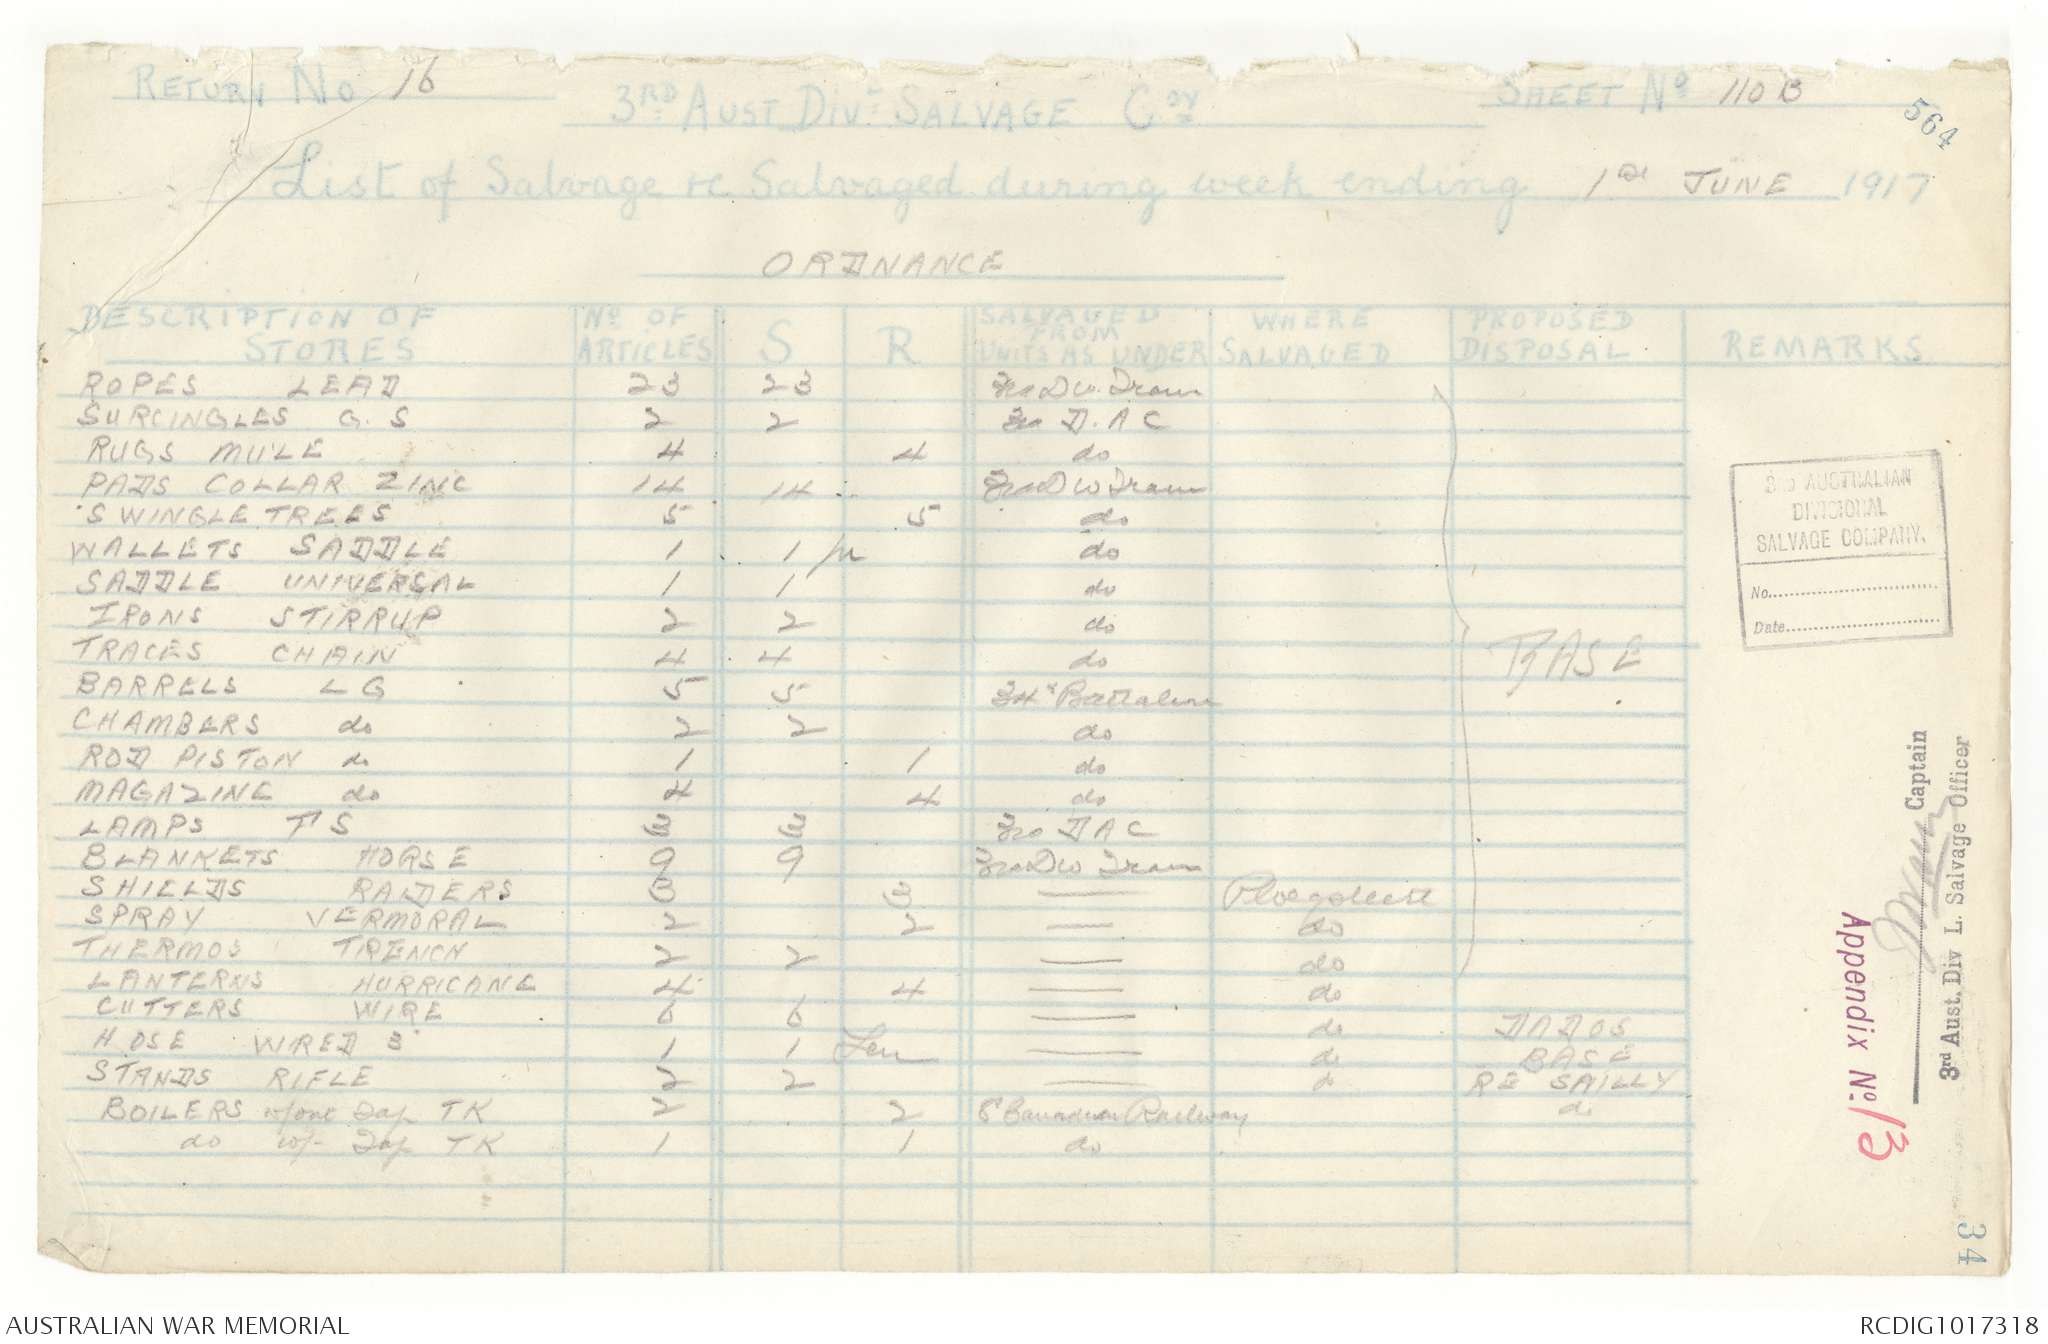 RETURN No 16
SHEET No 110B
564
3RD AUST DIVL SALVAGE COY
List of Salvage etc Salvaged during week ending 1st JUNE 1917
ORDNANCE
DESCRIPTION OF STORES | No OF ARTICLES | S | R | SALVAGED FROM UNITS AS UNDER | WHERE SALVAGED | PROPOSED DISPOSAL | REMARKS
ROPES LEAD 23 23 3rd Div. Train
SURCINGLES G.S 2 2 3rd D.A.C
RUGS MULE 4 4 do
PADS COLLAR ZINC 14 14 3rd Div Train
SWINGLE TREES 5 5 do
WALLETS SADDLE 1 1 pr do
SADDLE UNIVERSAL 1 1 do
IRONS STIRRUP 2 2 do
TRACES CHAIN 4 4 do
BASE
BARRELS LG 5 5 34th Battalion
CHAMBERS do 2 2 do
ROD PISTON do 1 1 do
MAGAZINE do 4 4 do
LAMPS 3 3 3rd DAC
BLANKETS HORSE 9 9 3rd Div Train
SHIELDS RAIDERS 3 3 — Ploegsteert
SPRAY VERMORAL 2 2 — do
THERMOS TRENCH 2 2 — do
LANTERNS HURRICANE 4 4 — do
CUTTERS WIRE 6 6 — do DADOS
HOSE WIRED 3" 1 1 — do BASE
STANDS RIFLE 2 2 — do RE SAILLY
BOILERS w/out Tap TK 2 2 8 Canadian Railway do
do w/- Tap TK 1 1 do
3RD AUSTRALIAN
DIVISIONAL
SALVAGE COMPANY.
No.
Date
Captain
3rd Aust. Div L. Salvage Officer
Appendix No. 13
34
AUSTRALIAN WAR MEMORIAL
RCDIG1017318